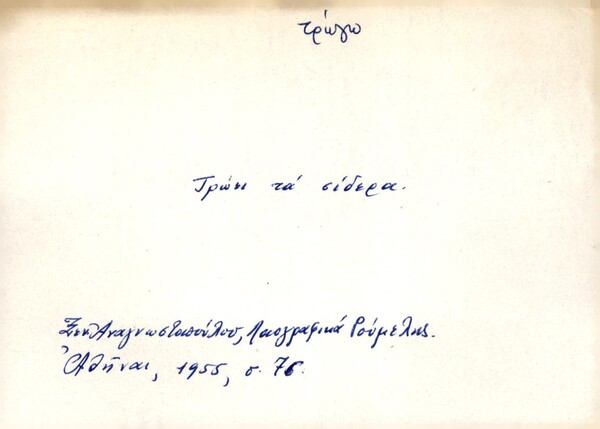 τρώγω
Τρώει τά σίδερα.
Ξεν. Αναγνωστοπούλου, Λαογραφικά Ρούμελης.
Ἀθῆναι, 1955, σ. 76.